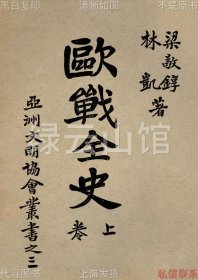 黑白复印 清晰如图 不是原书
梁敬錞
林凱
著
歐戰全史
上卷
亞洲文明協會叢書之三
云山馆
代寻图书 上海发货 私信联系